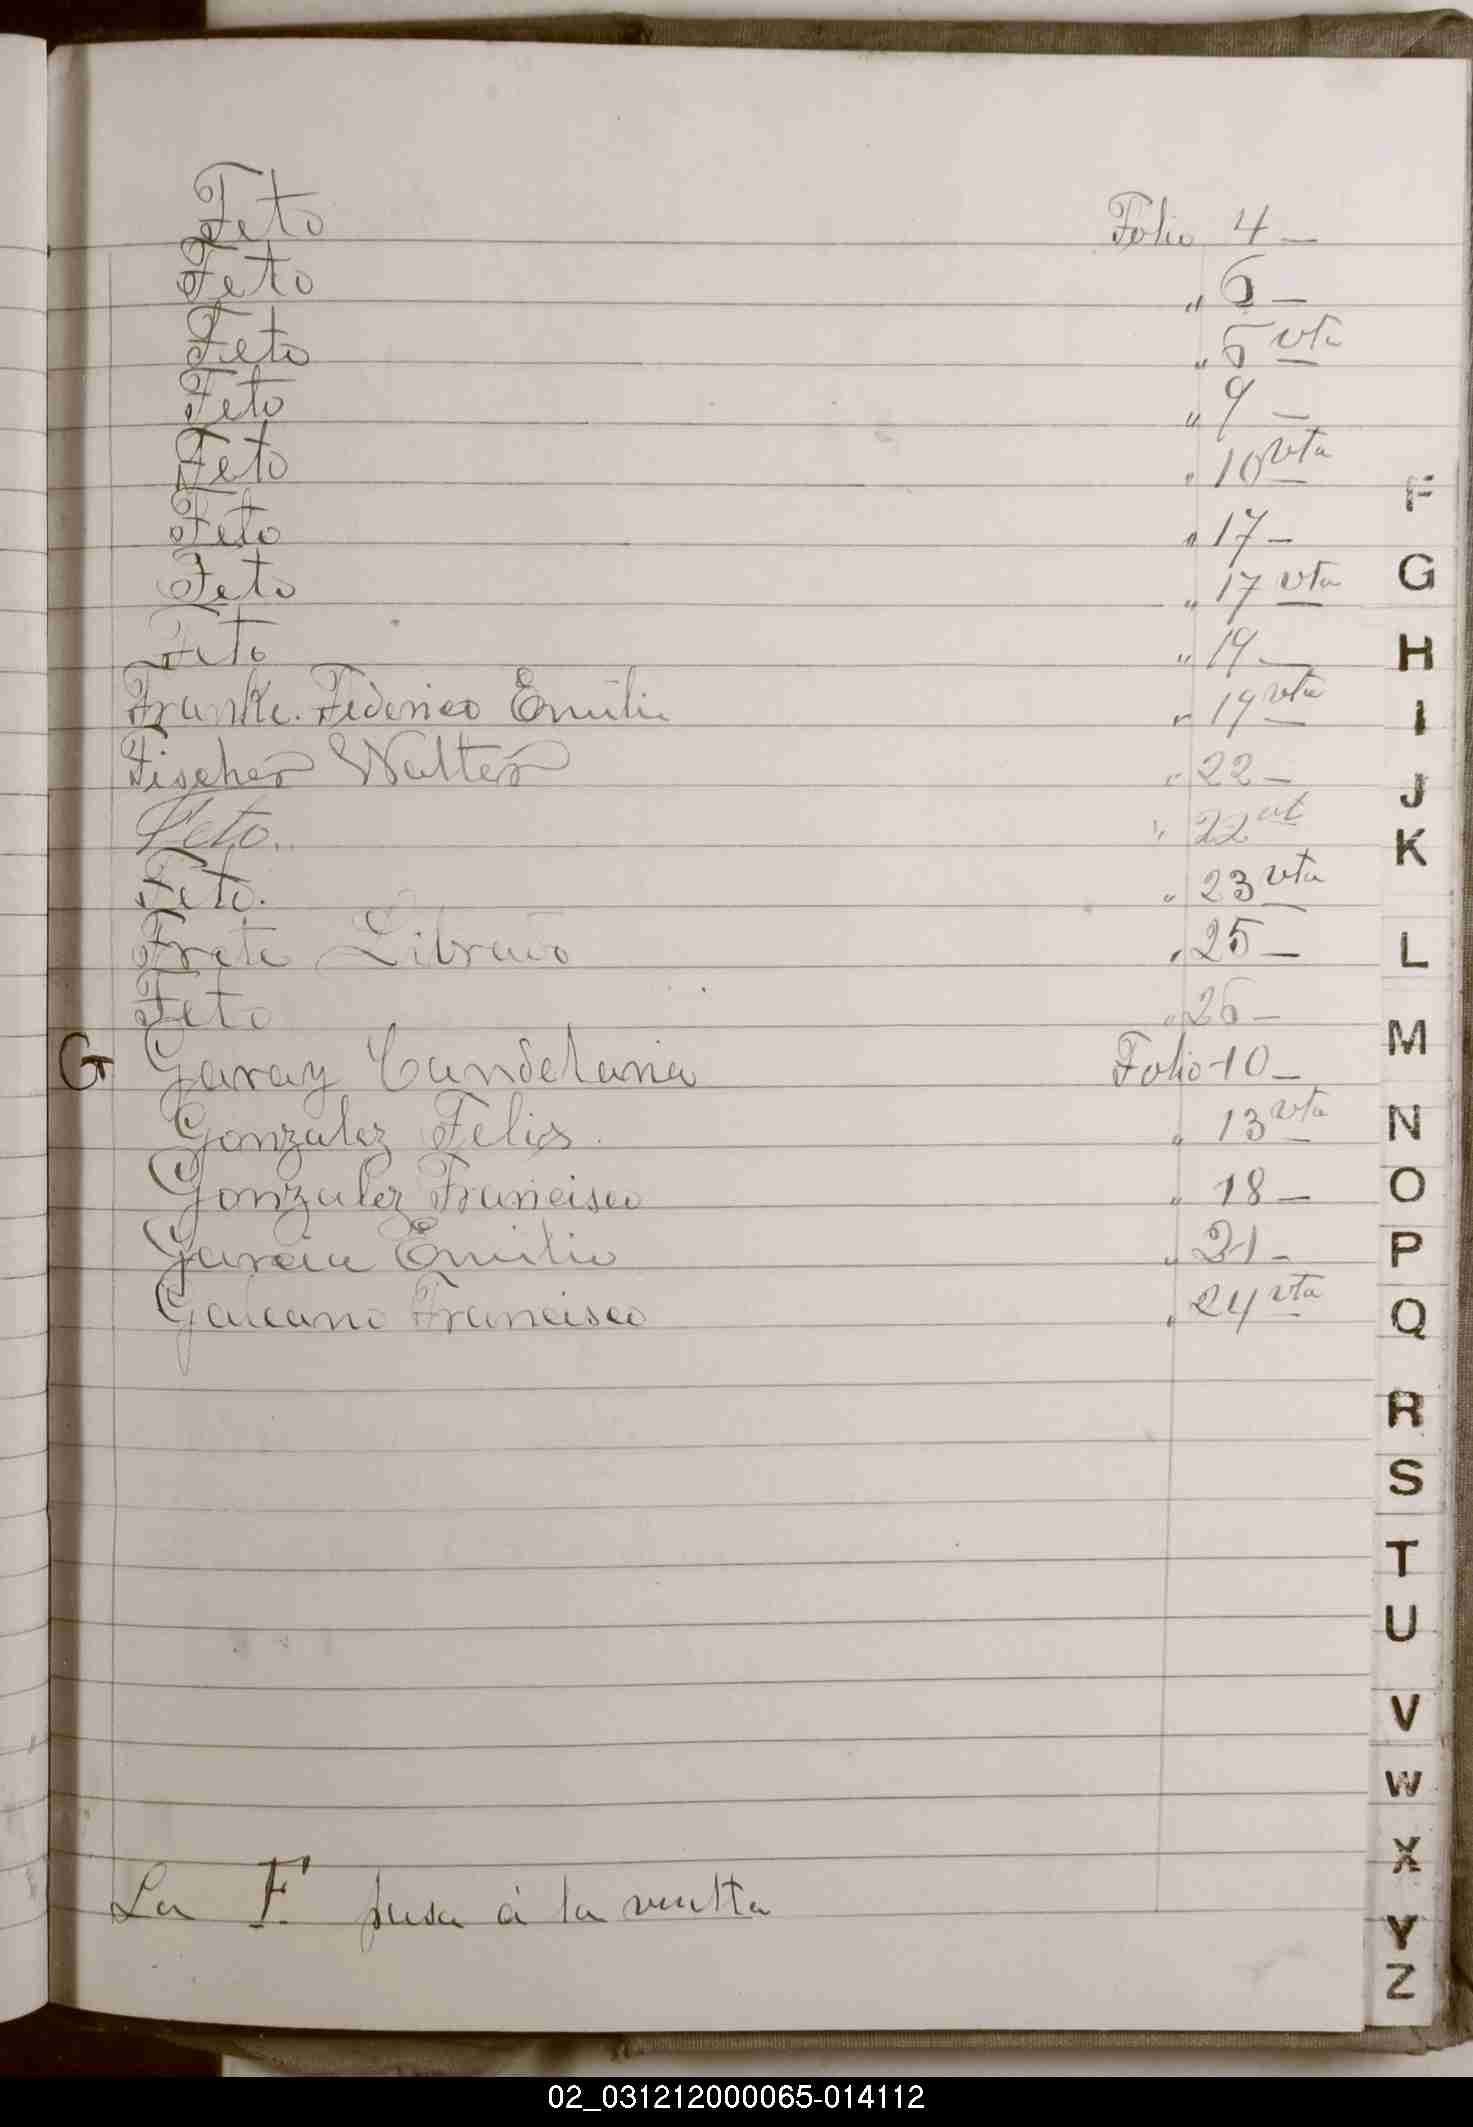 Feto Folio 4 —
Feto " 5 —
Feto " 5 vta
Feto " 9 —
Feto " 10 vta
Feto " 17 —
Feto " 17 vta
Feto " 19 —
Franke. Federico Emilio " 19 vta
Fischer Walter " 22 —
Feto. " 22 vt
Feto. " 23 vta
Frete " 25 —
Feto —
G Garay Candelaria Folio 10 —
Gonzalez Felix " 13 vta
Gonzalez Francisco " 18 —
Garcia Emilio " 21 —
Galeano Francisco " 24 vta
La F pasa á la vuelta
F
G
H
I
J
K
L
M
N
O
P
Q
R
S
T
U
V
W
X
Y
Z
02_031212000065-014112